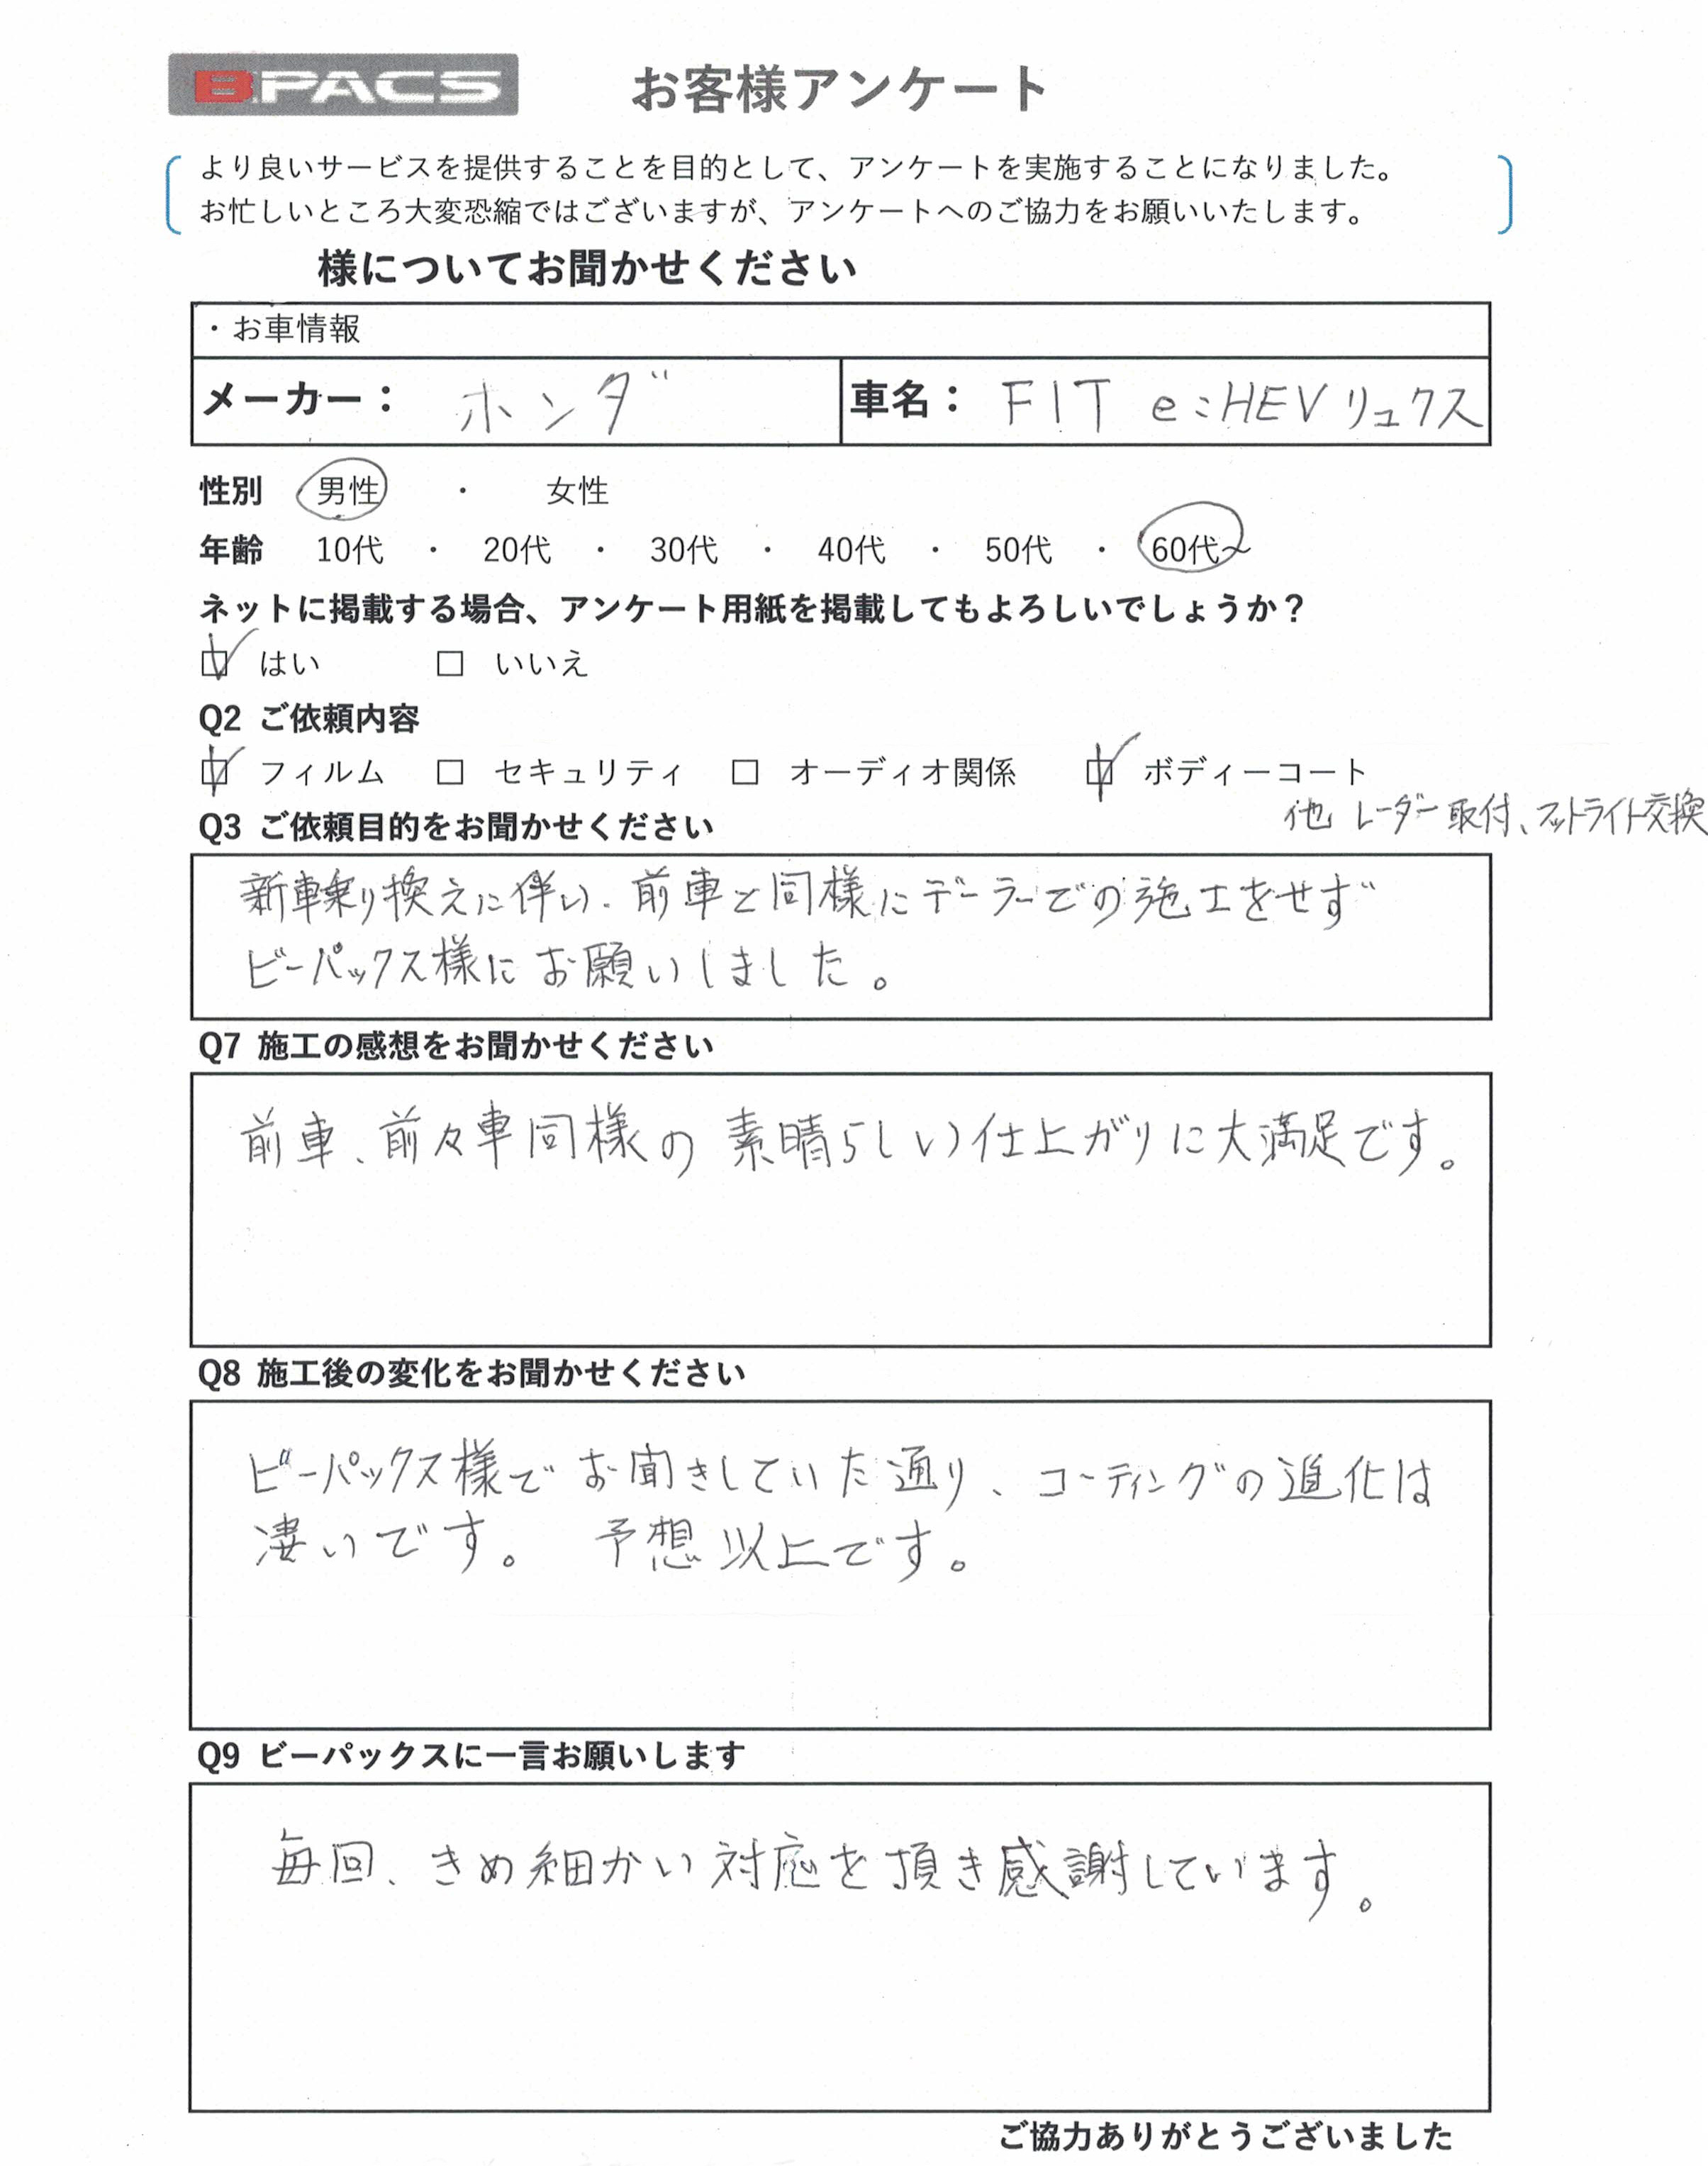 BPACS お客様アンケート
より良いサービスを提供することを目的として、アンケートを実施することになりました。
お忙しいところ大変恐縮ではございますが、アンケートへのご協力をお願いいたします。
様についてお聞かせください
・お車情報
メーカー： ホンダ 車名： FIT e:HEVリュクス
性別 男性 ・ 女性
年齢 10代 ・ 20代 ・ 30代 ・ 40代 ・ 50代 ・ 60代~
ネットに掲載する場合、アンケート用紙を掲載してもよろしいでしょうか？
☑ はい □ いいえ
Q2 ご依頼内容
☑ フィルム □ セキュリティ □ オーディオ関係 ☑ ボディーコート
他 レーダー取付、フットライト交換
Q3 ご依頼目的をお聞かせください
新車乗り換えに伴い、前車と同様にデーラーでの施工をせず
ビーパックス様にお願いしました。
Q7 施工の感想をお聞かせください
前車、前々車同様の素晴らしい仕上がりに大満足です。
Q8 施工後の変化をお聞かせください
ビーパックス様でお聞きしていた通り、コーティングの進化は
凄いです。 予想以上です。
Q9 ビーパックスに一言お願いします
毎回、きめ細かい対応を頂き感謝しています。
ご協力ありがとうございました